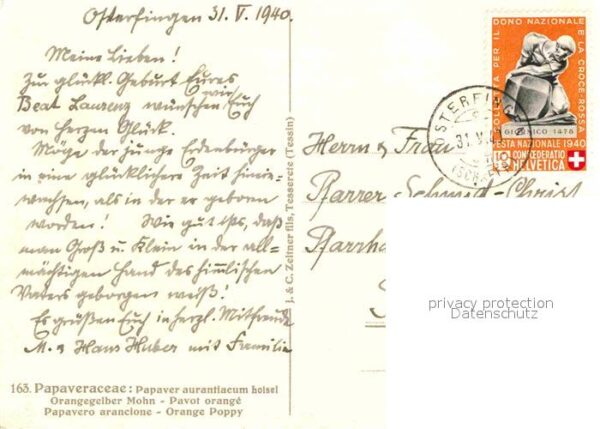 Osterfingen 31. V. 1940.
Meine Lieben!
Zur glückl. Geburt Eures
Beat Laurenz wünschen wir Euch
von Herzen Glück.
Möge der junge Erdenbürger
in eine glücklichere Zeit hinein-
wachsen, als in der er geboren
worden! Wie gut ists, daß
man Groß u. Klein in der all-
mächtigen Hand des himmlischen
Vaters geborgen weiß!
Es grüßen Euch in herzl. Mitfreude
M. & Hans Huber mit Familie
163. Papaveraceae: Papaver aurantiacum loisel
Orangegelber Mohn - Pavot orangé
Papavero arancione - Orange Poppy
J. & C. Zeltner fils, Tesserete (Tessin)
Herrn & Frau
Pfarrer Schmid-Christ
Pfarrha
COLLETTA PER IL DONO NAZIONALE E LA CROCE-ROSSA
GIORNICO 1478
FESTA NAZIONALE 1940
10 CONFŒDERATIO
HELVETICA
OSTERFINGEN
31.V.
privacy protection
Datenschutz